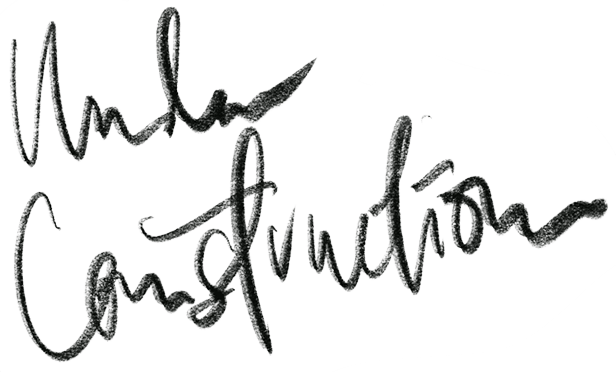 Under
Construction